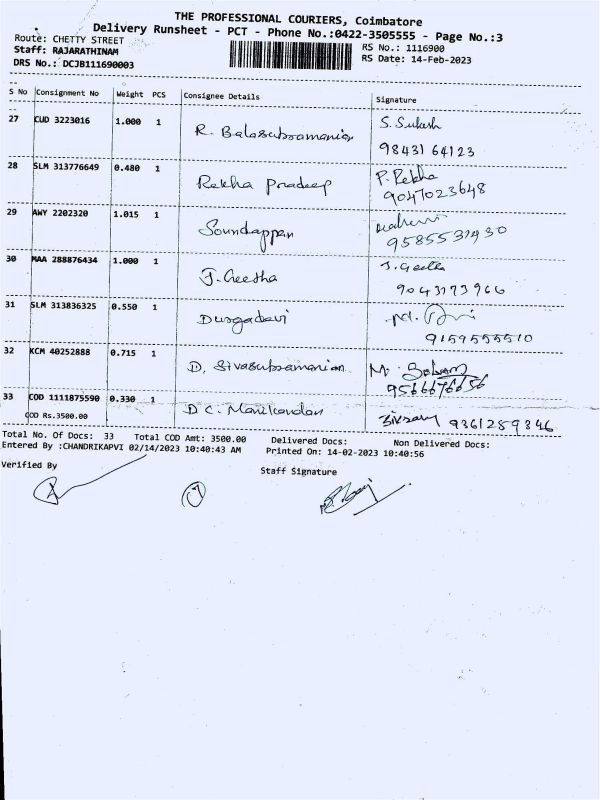 THE PROFESSIONAL COURIERS, Coimbatore
Delivery Runsheet - PCT - Phone No.:0422-3505555 - Page No.:3
Route: CHETTY STREET
RS No.: 1116900
Staff: RAJARATHINAM
RS Date: 14-Feb-2023
DRS No.: DCJB111690003
S No Consignment No Weight PCS Consignee Details Signature
27 CUD 3223016 1.000 1 R. Balasubramanian S. Sukesh
9843164123
28 SLM 313776649 0.480 1 Rekha Pradeep P. Rekha
9047023648
29 AWY 2202320 1.015 1 Soundappan
9585531930
30 MAA 288876434 1.000 1 J. Geetha J. Geetha
9043173966
31 SLM 313836325 0.550 1 Durgadevi
9159555510
32 KCM 40252888 0.715 1 D. Sivasubramanian M.
9566676656
33 COD 1111875590 0.330 1 D C. Manikandan 9361289346
COD Rs.3500.00
Total No. Of Docs: 33 Total COD Amt: 3500.00 Delivered Docs: Non Delivered Docs:
Entered By :CHANDRIKAPVI 02/14/2023 10:40:43 AM Printed On: 14-02-2023 10:40:56
Verified By Staff Signature